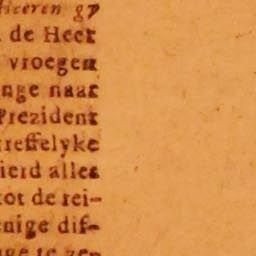 Heeren gy
de Heer
vroegen
nge naar
Prezident
treffelyke
ierd alles
tot de rei-
nige dif-
ge te ze-